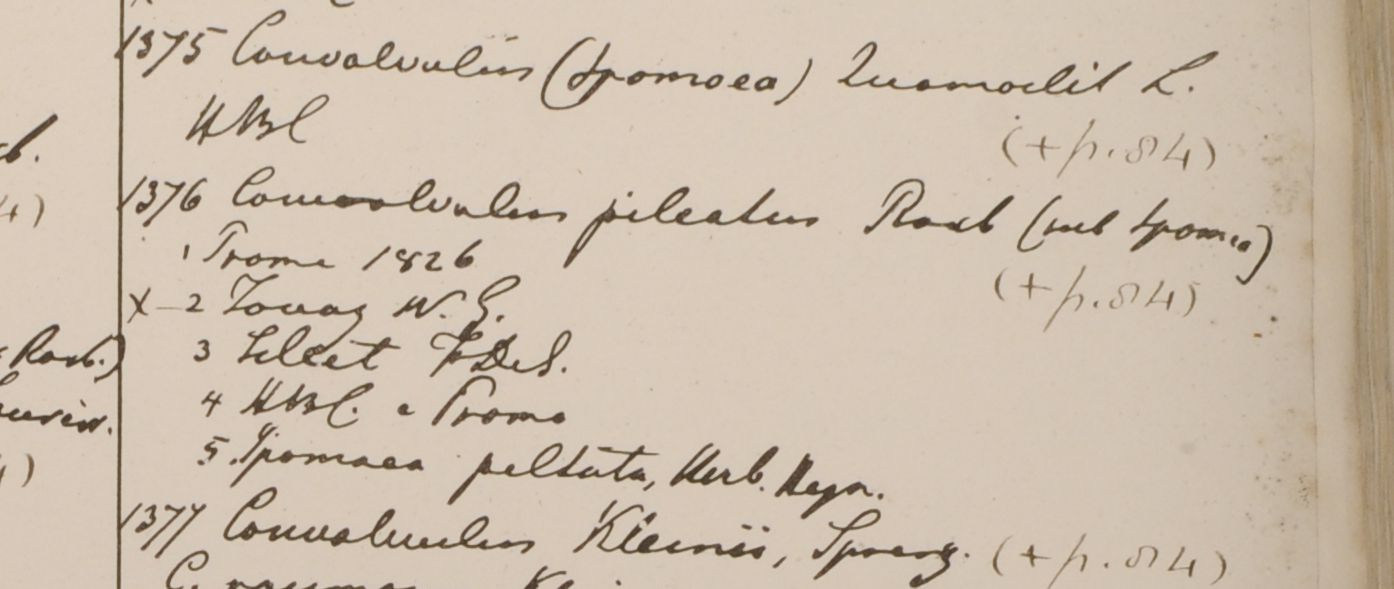 b.
4)
Roxb.)
4)
1375 Convolvulus (Ipomoea) Quamoclit L.
HBC
(+p.84)
1376 Convolvulus pileatus Roxb (sub Ipomea)
1 Prome 1826
(+p.84)
X - 2 Tavoy W. G.
3 Silhet F.D.S.
4 HBC. e Prome
5. Ipomaea peltata, Herb. Heyn.
1377 Convolvulus Kleinii, Spreng. (+p.84)
C.